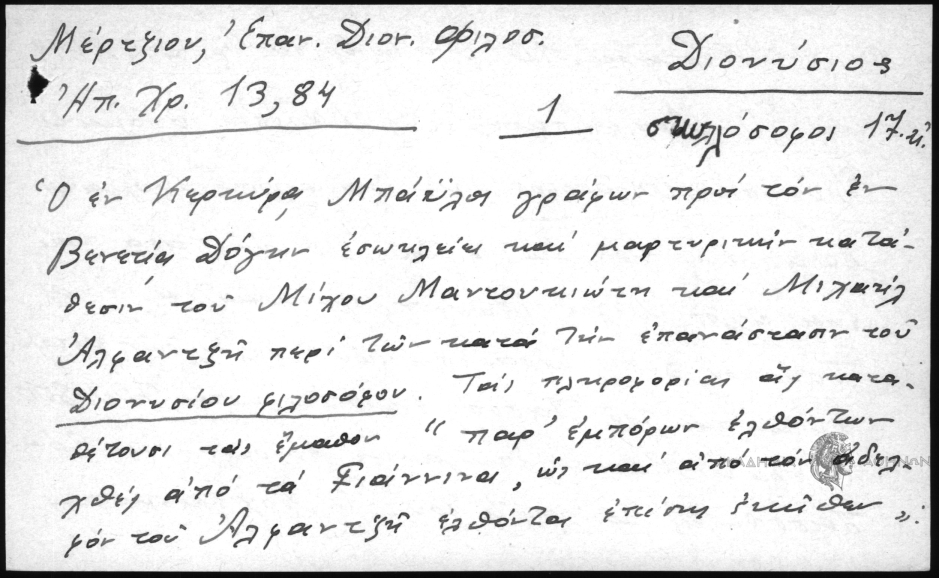 Μέρτζιου, Ἐπαν. Διον. Φιλοσ.
Διονύσιος
Ἠπ. Χρ. 13, 84
1
σκυλόσοφος 17. αἰ.
Ὁ ἐν Κερκύρᾳ Μπάϋλος γράφων πρός τόν ἐν
Βενετίᾳ Δόγην ἐσωκλείει καί μαρτυρικήν κατά-
θεσιν τοῦ Μίχου Μαντουκιώτη καί Μιχαήλ
Ἀλφαντζῆ περί τῶν κατά τήν ἐπανάστασιν τοῦ
Διονυσίου φιλοσόφου. Τάς πληροφορίας ἅς κατα-
θέτουσι τάς ἔμαθον "παρ' ἐμπόρων ἐλθόντων
χθές ἀπό τά Γιάννινα, ὡς καί ἀπό τόν ἀδελ-
φόν τοῦ Ἀλφαντζῆ ἐλθόντα ἐπίσης ἐκεῖθεν".